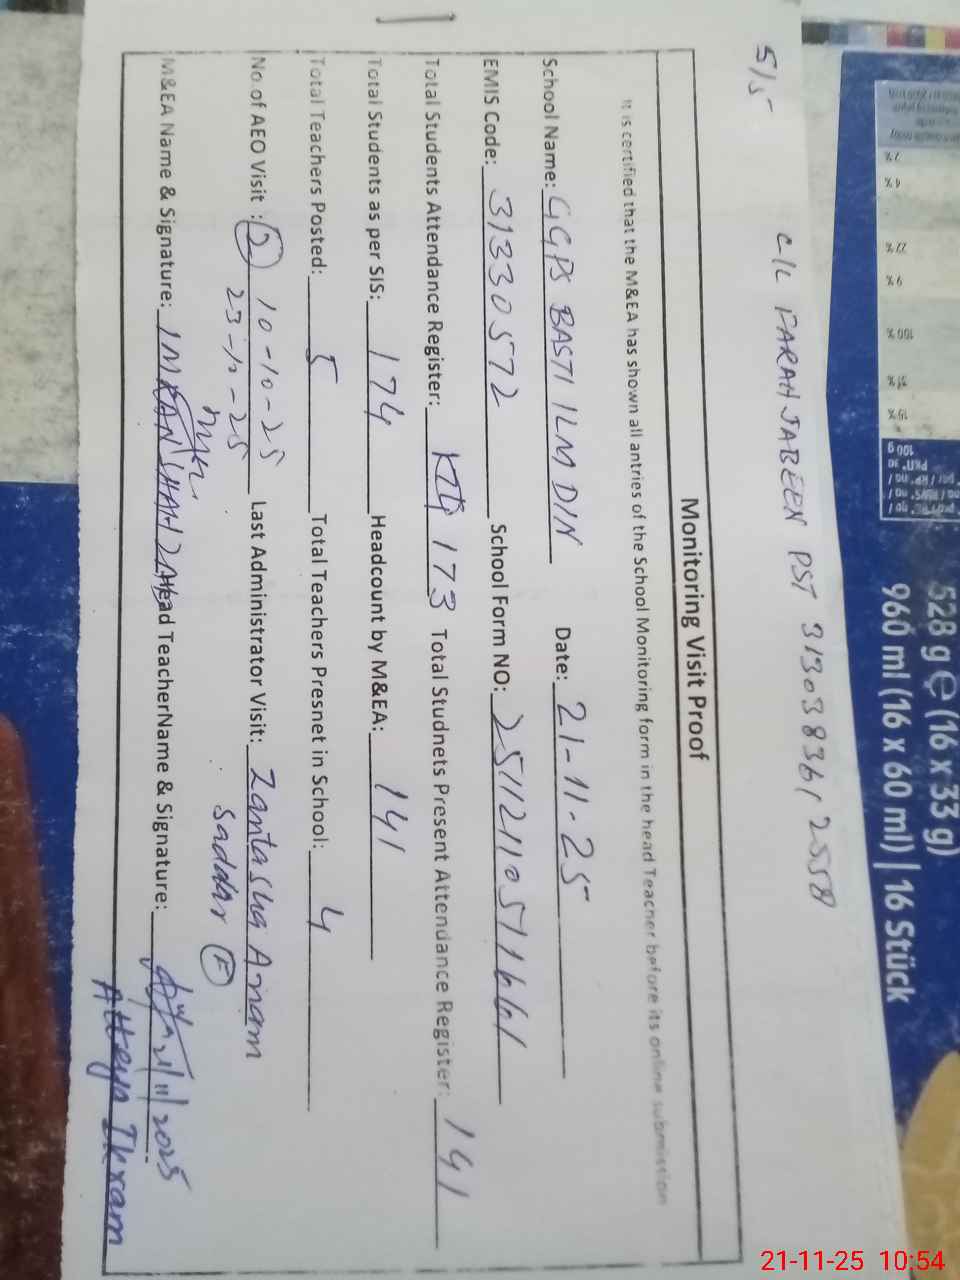 5/5 C/L FARAH JABEEN PST 31303 8361 2558
Monitoring Visit Proof
It is certified that the M&EA has shown all antries of the School Monitoring form in the head Teacher before its online submisstion
School Name: GGPS BASTI ILM DIN Date: 21-11-25
EMIS Code: 31330572 School Form NO:
Total Students Attendance Register: 173 Total Studnets Present Attendance Register: 141
Total Students as per SIS: 174 Headcount by M&EA: 141
Total Teachers Posted: 5 Total Teachers Presnet in School: 4
No.of AEO Visit : 2 10-10-25 Last Administrator Visit: Zantasha Amam
23-10-25 Saddar F
M&EA Name & Signature: IMRAN SHAHZAD Head TeacherName & Signature: 21/11/2025
Atteya Ikram
528 g e (16 x 33 g)
960 ml (16 x 60 ml) | 16 Stück
100 g
100 %
21-11-25 10:54